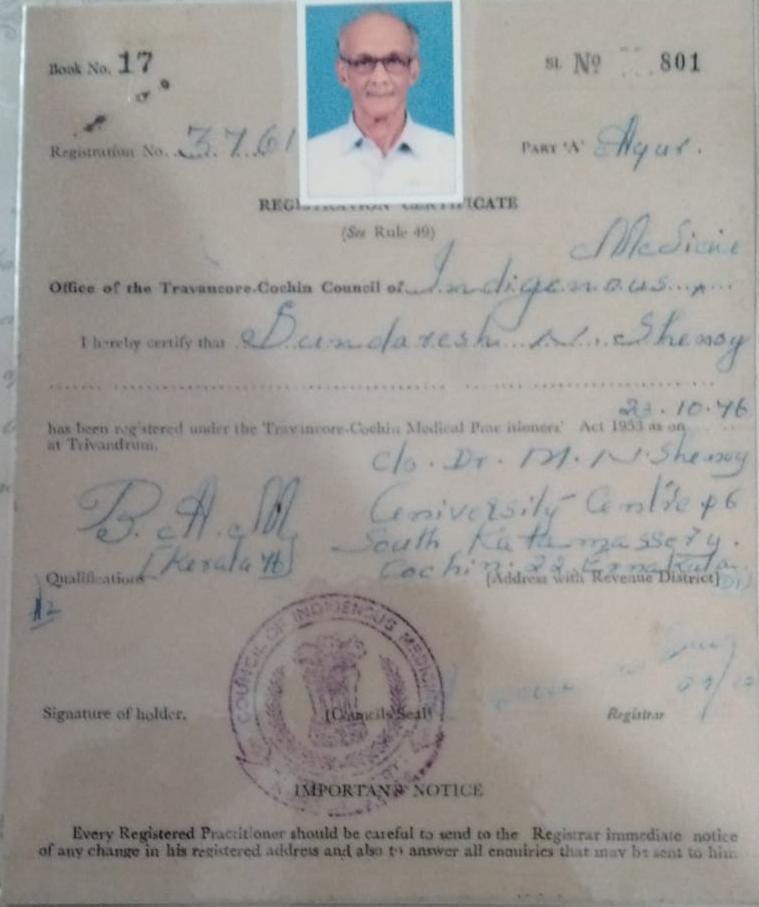 Book No. 17
Sl. No 801
Registration No. 3761
PART 'A' Ayur.
REGISTRATION CERTIFICATE
(See Rule 49)
Medicine
Office of the Travancore-Cochin Council of Indigenous
I hereby certify that Sundaresh N. Shenoy
23.10.76
has been registered under the Travancore-Cochin Medical Practitioners' Act 1953 as on
at Trivandrum.
C/o. Dr. M. N. Shenoy
B.A.M University Centre P6
[Kerala 76] South Kalamassery.
Cochin. 22. Ernakulam
Qualifications [Address with Revenue District]
COUNCIL OF INDIGENOUS MEDICINE
Signature of holder. [Councils Seal] Registrar
IMPORTANT NOTICE
Every Registered Practitioner should be careful to send to the Registrar immediate notice
of any change in his registered address and also to answer all enquiries that may be sent to him